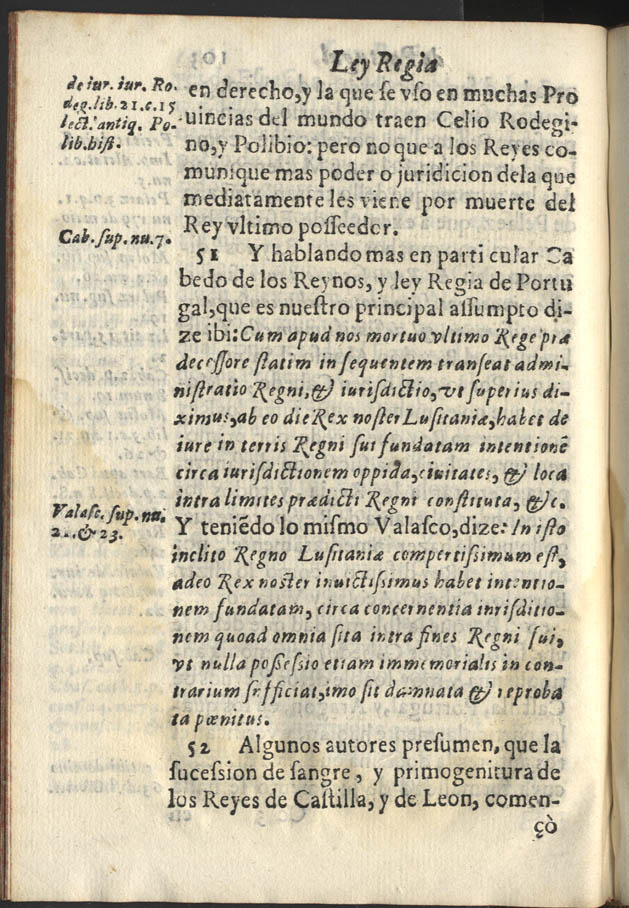 Ley Regia
de iur. iur. Ro-
deg. lib. 21. c. 15
lect. antiq. Po-
lib. hist.
en derecho, y la que se vso en muchas Pro
uincias del mundo traen Celio Rodegi-
no, y Polibio: pero no que a los Reyes co-
munique mas poder o juridicion dela que
mediatamente les viene por muerte del
Rey vltimo posseedor.
Cab. sup. nu. 7.
51 Y hablando mas en particular Ca
bedo de los Reynos, y ley Regia de Portu
gal, que es nuestro principal assumpto di-
ze ibi: Cum apud nos mortuo vltimo Rege præ
decessore statim in sequentem transeat admi-
nistratio Regni, & iurisdictio, vt superius di-
ximus, ab eo die Rex noster Lusitaniæ, habet de
iure in terris Regni sui fundatam intentionē
circa iurisdictionem oppida, ciuitates, & loca
intra limites prædicti Regni constituta, &c.
Valasc. sup. nu.
21. & 23.
Y teniēdo lo mismo Valasco, dize: In isto
inclito Regno Lusitaniæ compertissimum est,
adeo Rex noster inuictissimus habet intentio-
nem fundatam, circa concernentia inrisditio-
nem quoad omnia sita intra fines Regni sui,
vt nulla possessio etiam immemorialis in con-
trarium sufficiat, imo sit damnata & reproba
ta pœnitus.
52 Algunos autores presumen, que la
sucession de sangre, y primogenitura de
los Reyes de Castilla, y de Leon, comen-
çò